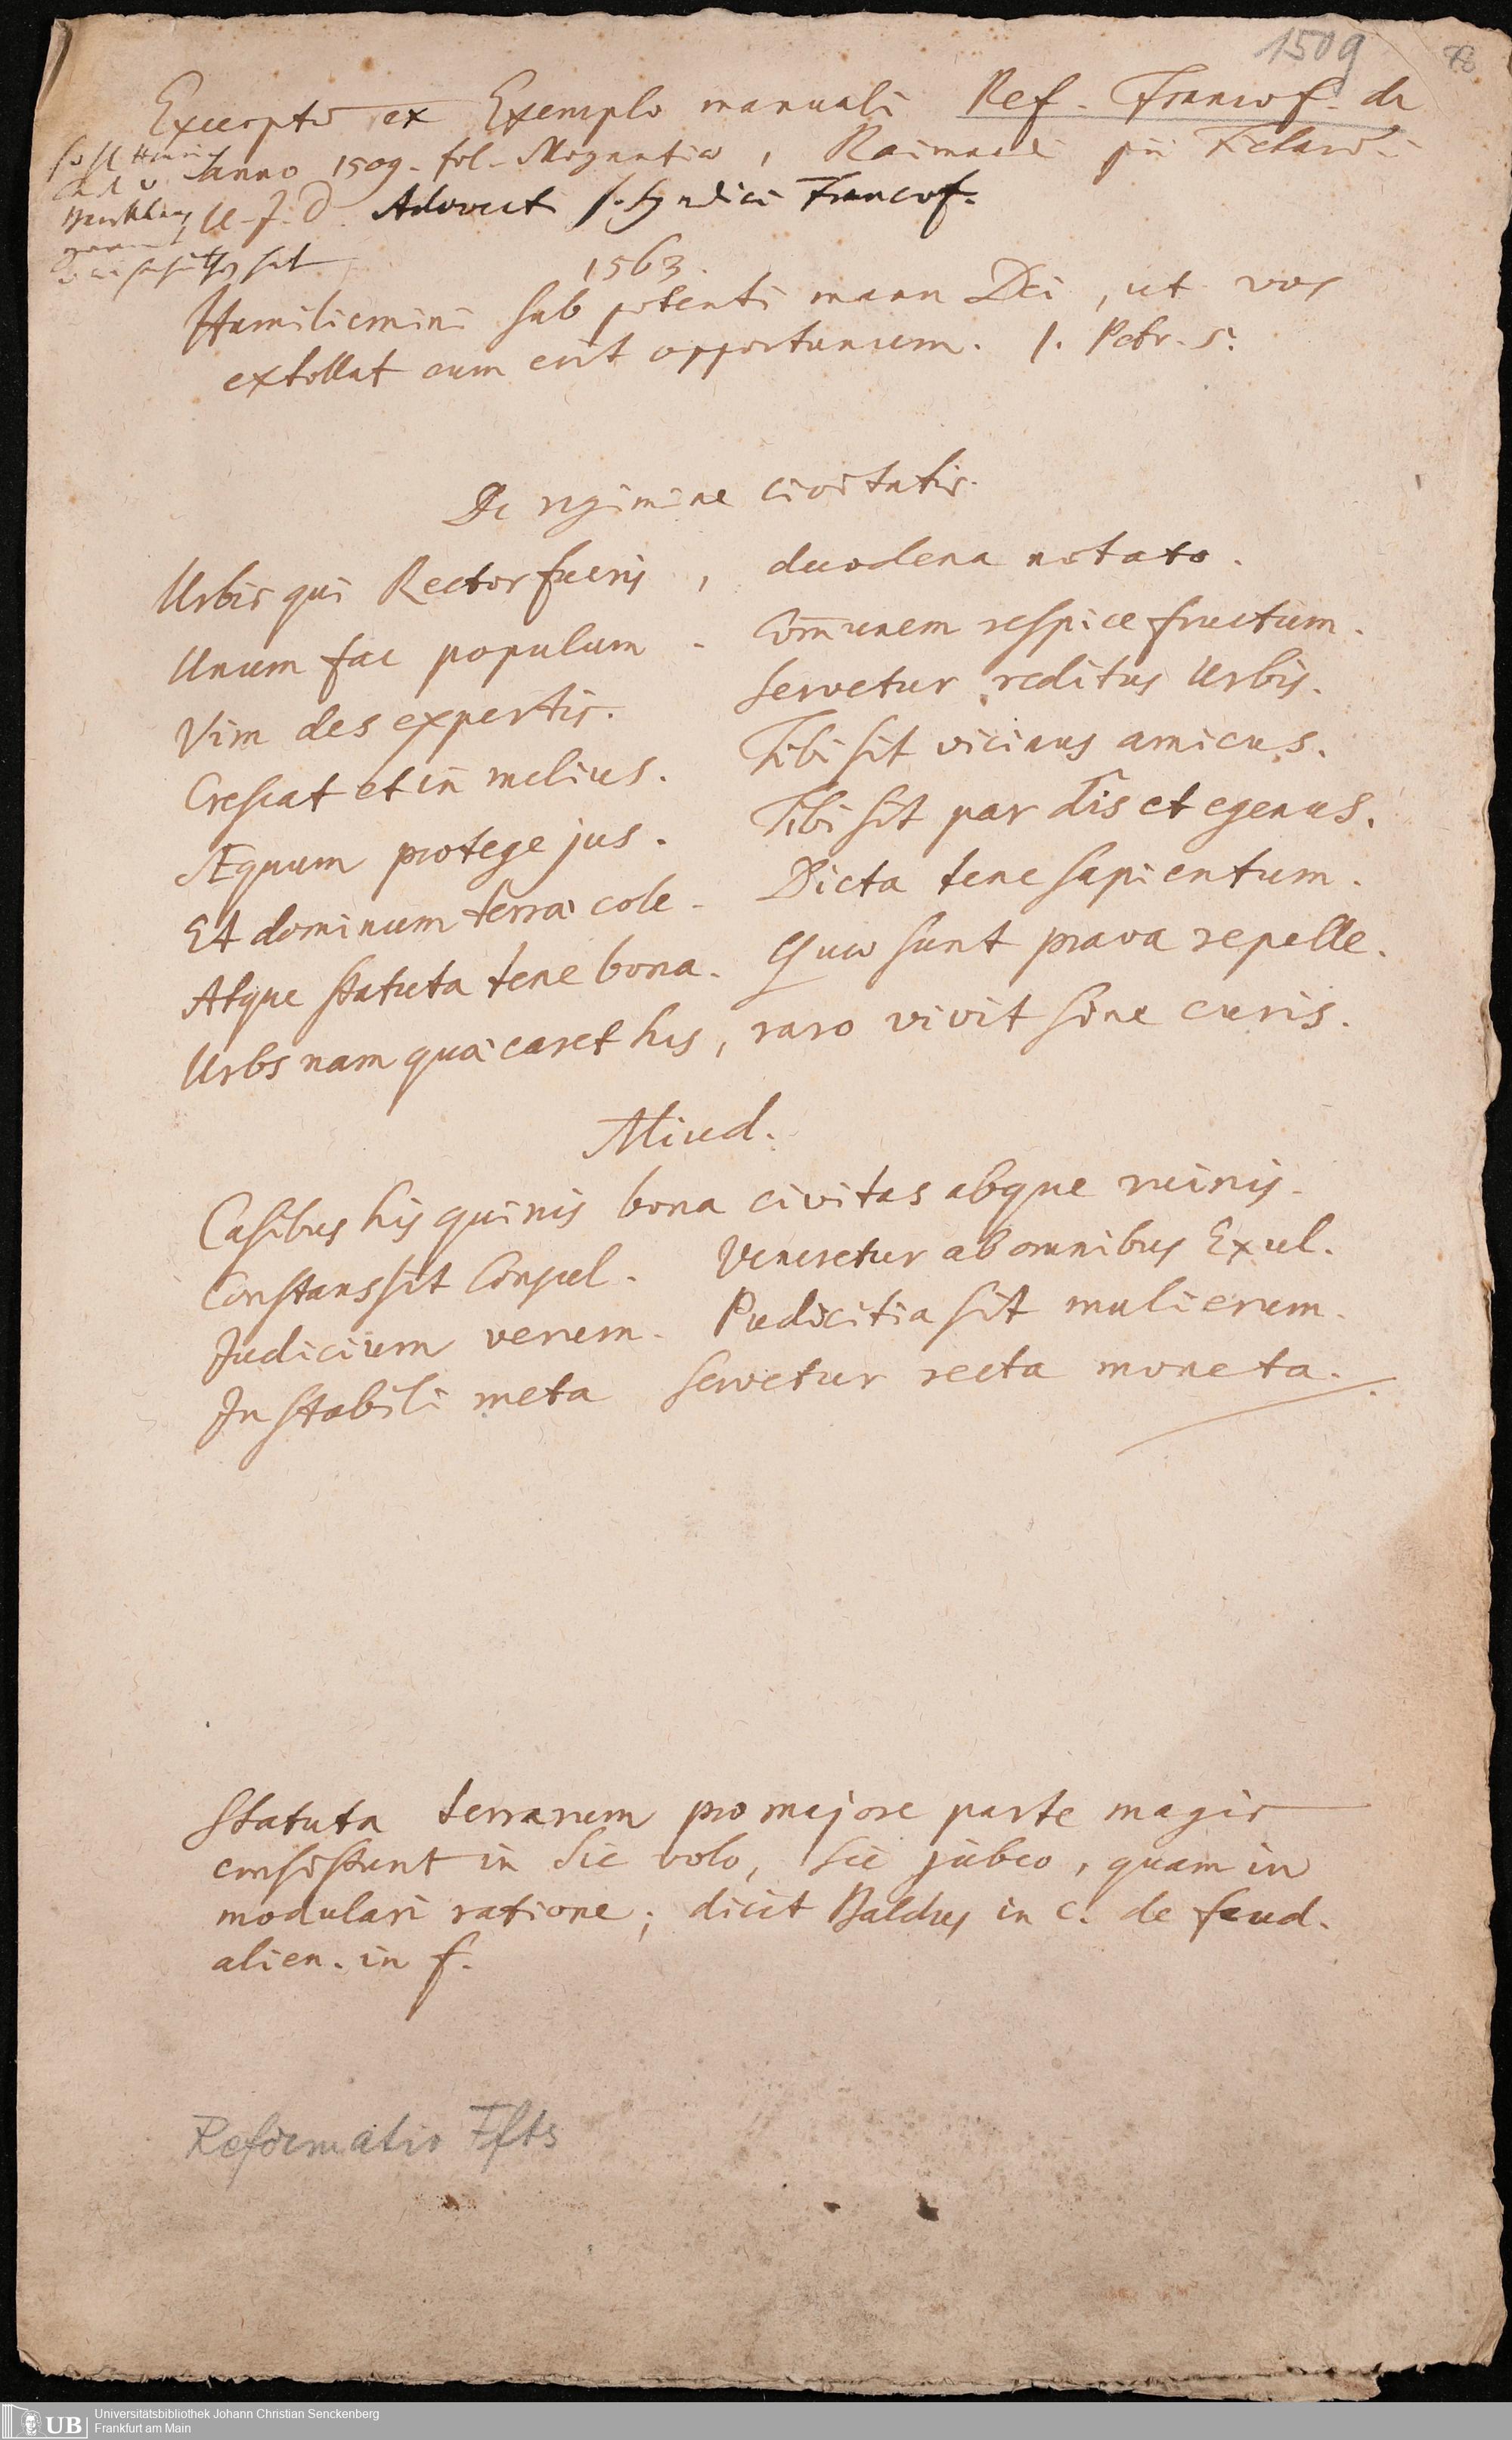 1509
78
Excerpta ex Exemplo manuali Ref. Francof. de
Anno 1509. fol. Moguntiae, Raimundi Pii Fichardi
U. J. D. Advocati & Syndici Francof.
1563.
Humiliemini sub potenti manu Dei, ut vos
extollat cum erit opportunum. 1. Petr. 5.
De regimine civitatis.
Urbis qui Rector fueris, duodena notato.
Unum fac populum. Com̄unem respice fructum.
Vim des expertis. Servetur reditus Urbis.
Crescat et in melius. Tibi sit vicinus amicus.
Æquum protege jus. Tibi sit par dis et egenus.
Et dominum terrae cole. Dicta tene sapientum.
Atque statuta tene bona. Quae sunt prava repelle.
Urbs nam quae caret his, raro vivit sine curis.
Aliud.
Casibus his quinis bona civitas absque ruinis.
Constans sit Consul. Veneretur ab omnibus Exul.
Judicium verum. Pudicitia sit mulierum.
In stabili meta servetur recta moneta.
Statuta terrarum pro majore parte magis
consistunt in sic volo, sic jubeo, quam in
modulari ratione; dicit Baldus in c. de feud.
alien. in f.
Reformatio Ffts
UB
Universitätsbibliothek Johann Christian Senckenberg
Frankfurt am Main